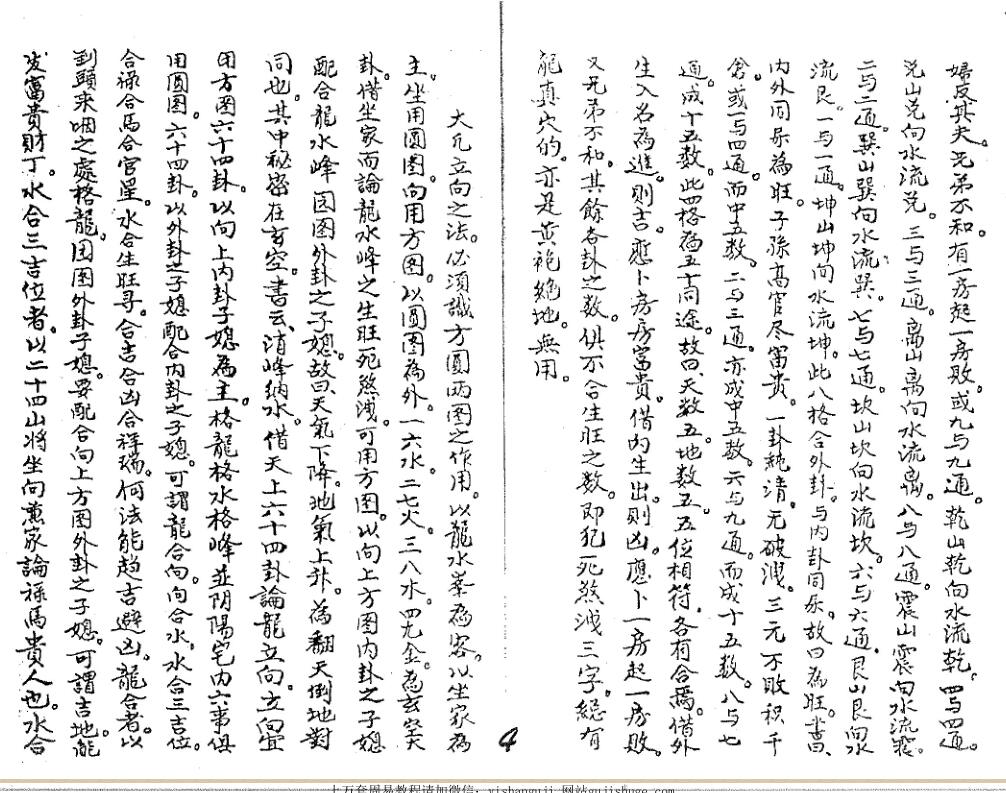 婦反其夫。兄弟不和。有一房起一房敗。或九与九通。乾山乾向水流乾。四与四通。
兑山兑向水流兑。三与三通。离山离向水流离。八与八通。震山震向水流震。
二与二通。巽山巽向水流巽。七与七通。坎山坎向水流坎。六与六通。艮山艮向水
流艮。一与一通。坤山坤向水流坤。此八格合外卦。与内卦同
内外同 為旺。子孫高官尽富贵。一卦純清。无破洩。三元不敗积千
倉。或一与四通。而中五数。二与三通。亦成中五数。六与九通。而成十五数。八与七
通。成十五数。此四格為五十同途。故曰。天数五。地数五。五位相符。各有合焉。借外
生入名為進。則吉。應卜房房富貴。借内生出。則凶。應卜一房起一房敗。
又兄弟不和。其餘各卦之数。俱不合生旺之数。即犯死煞洩三字。総有
龍真穴的。亦是黄袍絶地。無用。
大凡立向之法。必須識方圓两图之作用。以龍水峯為客。以坐家為
主。坐用圓图。向用方图。以圓图為外。一六水。二七火。三八木。四九金。為玄空天
卦。借坐家而論龍水峰之生旺死煞洩。可用方图。以向上方图内卦之子媳
配合龍水峰圆图外卦之子媳。故曰天氣下降。地氣上升。為翻天倒地對
同也。其中秘密在玄空。書云。清峰納水。借天上六十四卦論龍立向。立向宜
用方图六十四卦。以向上内卦子媳為主。格龍格水格峰並阴陽宅内六事俱
用圓图。六十四卦。以外卦之子媳配合内卦之子媳。可謂龍合向。向合水。水合三吉位。
合祿合馬合官星。水合生旺寻。合吉合凶合祥瑞。何法能趋吉避凶。龍合者。以
到頭來咽之處格龍。圓图外卦子媳。要配合向上方图外卦之子媳。可謂吉地。能
发富貴財丁。水合三吉位者。以二十四山将坐向煎家論祿馬貴人也。水合
4